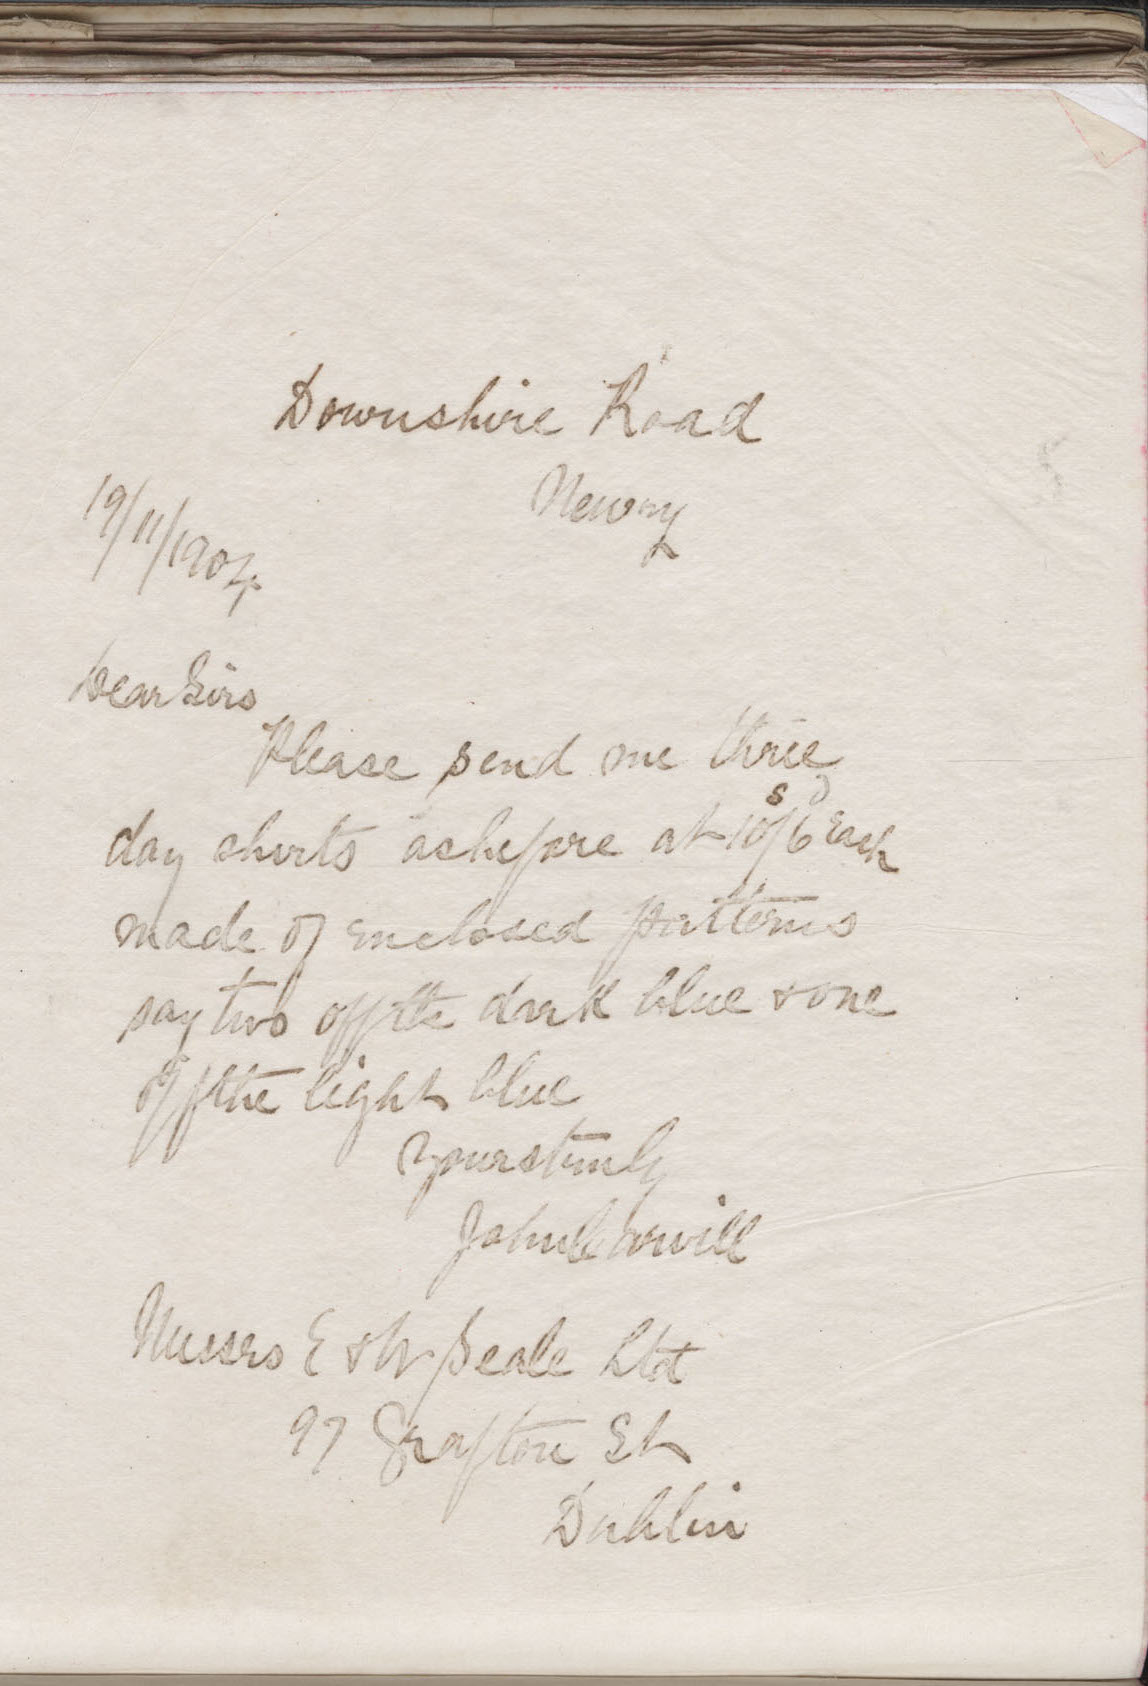 Downshire Road
Newry
19/11/1904
Dear Sirs
Please send me three
day shirts as before at 10s/6d Each
made of enclosed patterns
say two off the dark blue & one
off the light blue
Yours truly
John
Messrs E & W Seale Ltd
97 Grafton St
Dublin